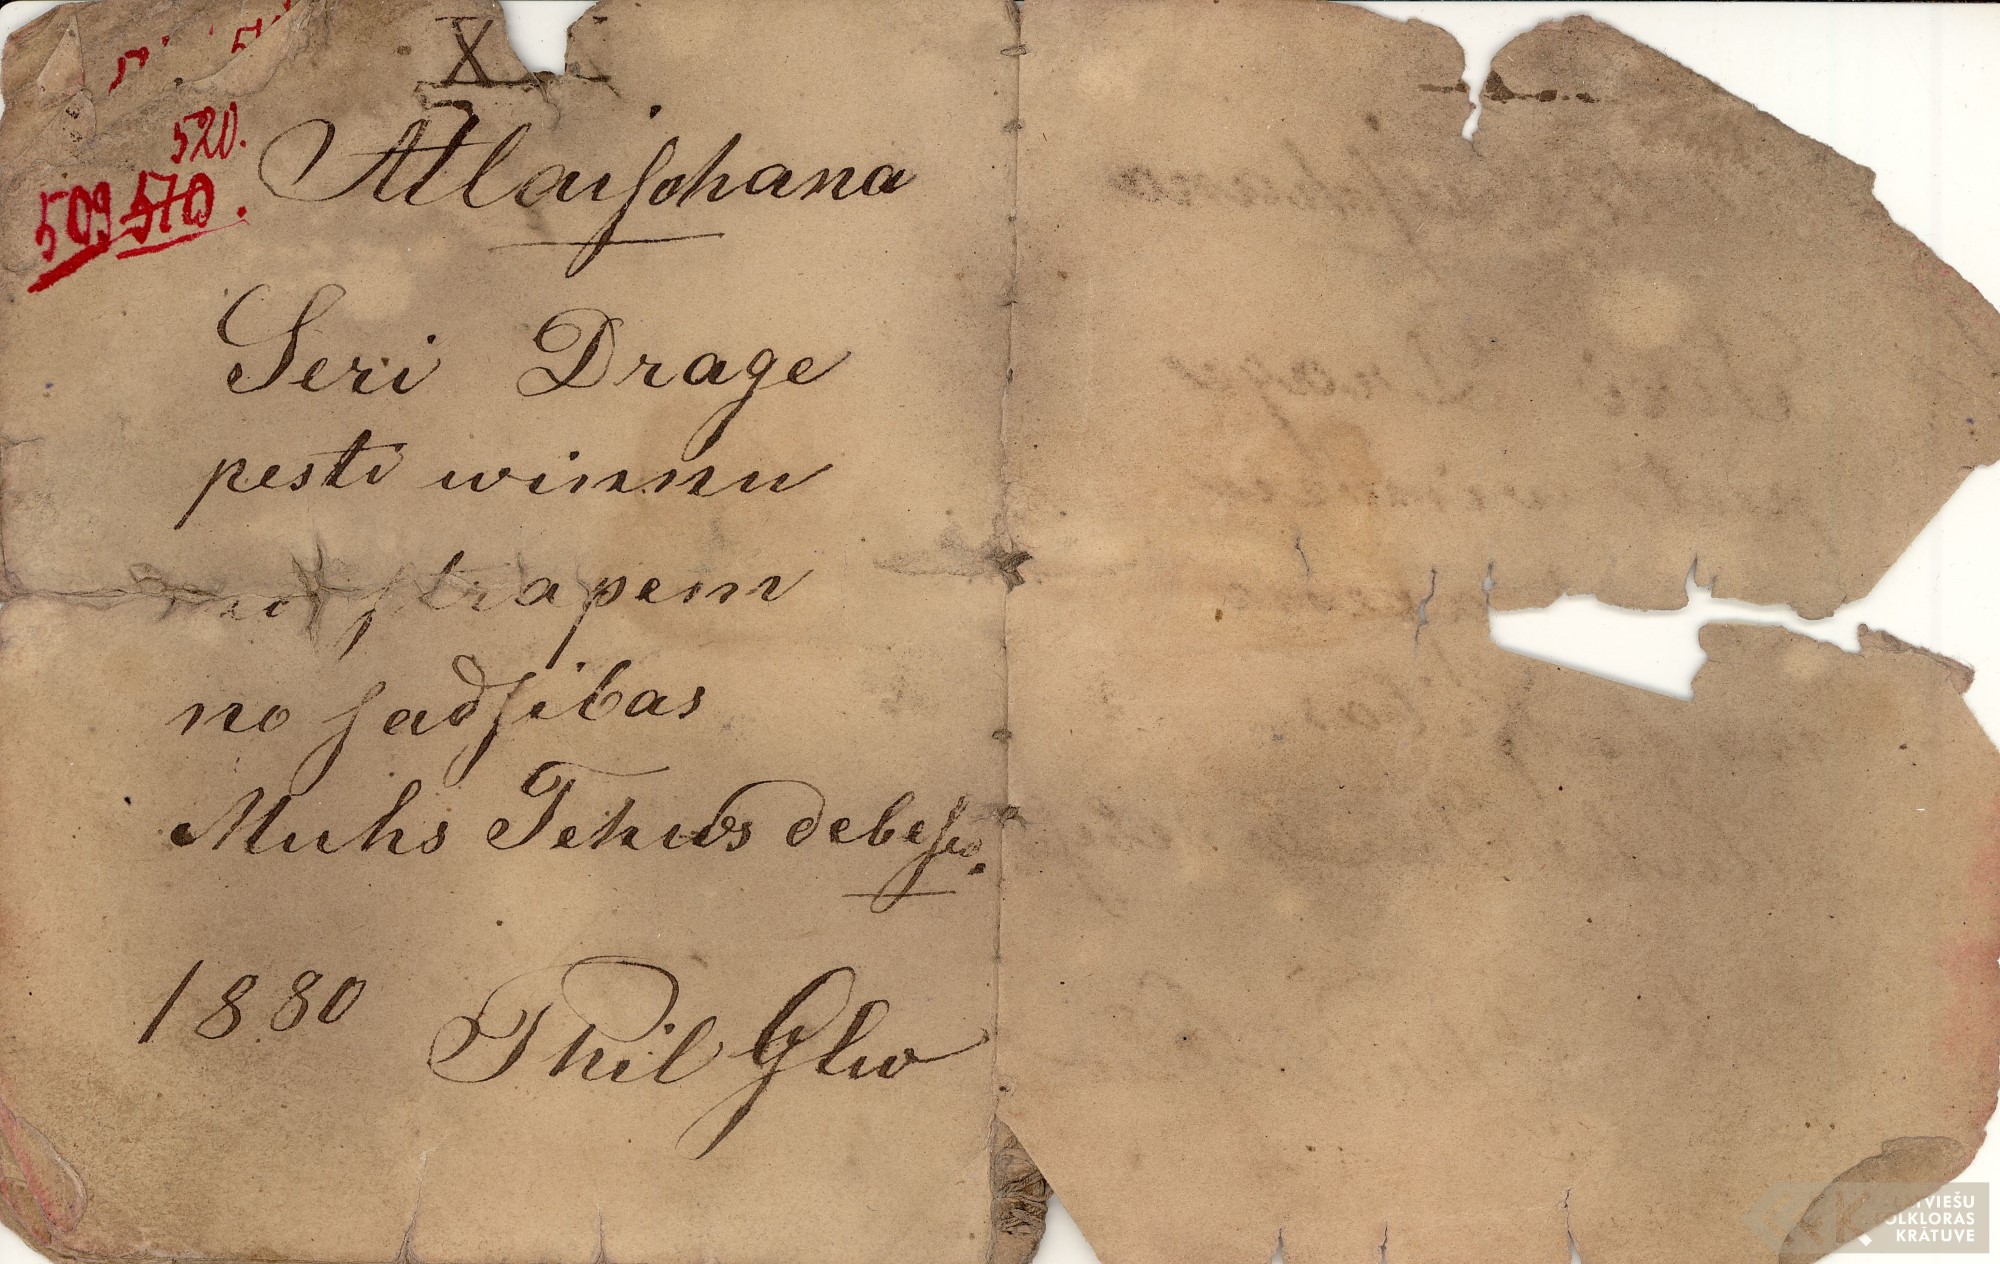 X
520.
509 570.
Atlaiſchana
Seri Drage
pesti winnu
no ſtrapem
no ſadſibas
Muhs Tehws debeſis.
1880 Thil Glw
LATVIEŠU
FOLKLORAS
KRĀTUVE